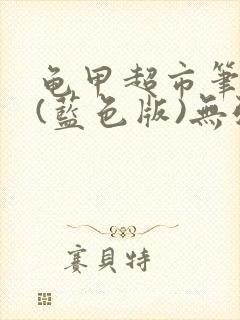 龟甲超市筆
(藍色版)無
賽貝特